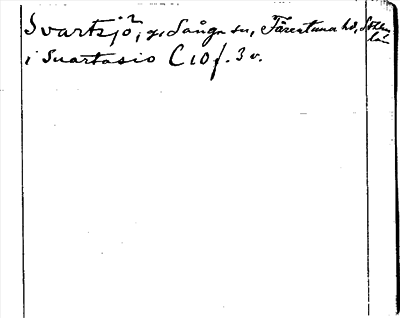 Svartsjö, gd Sånga sn, Färentuna hd, Sthlms län
i Suartasio C 10 f. 3 v.